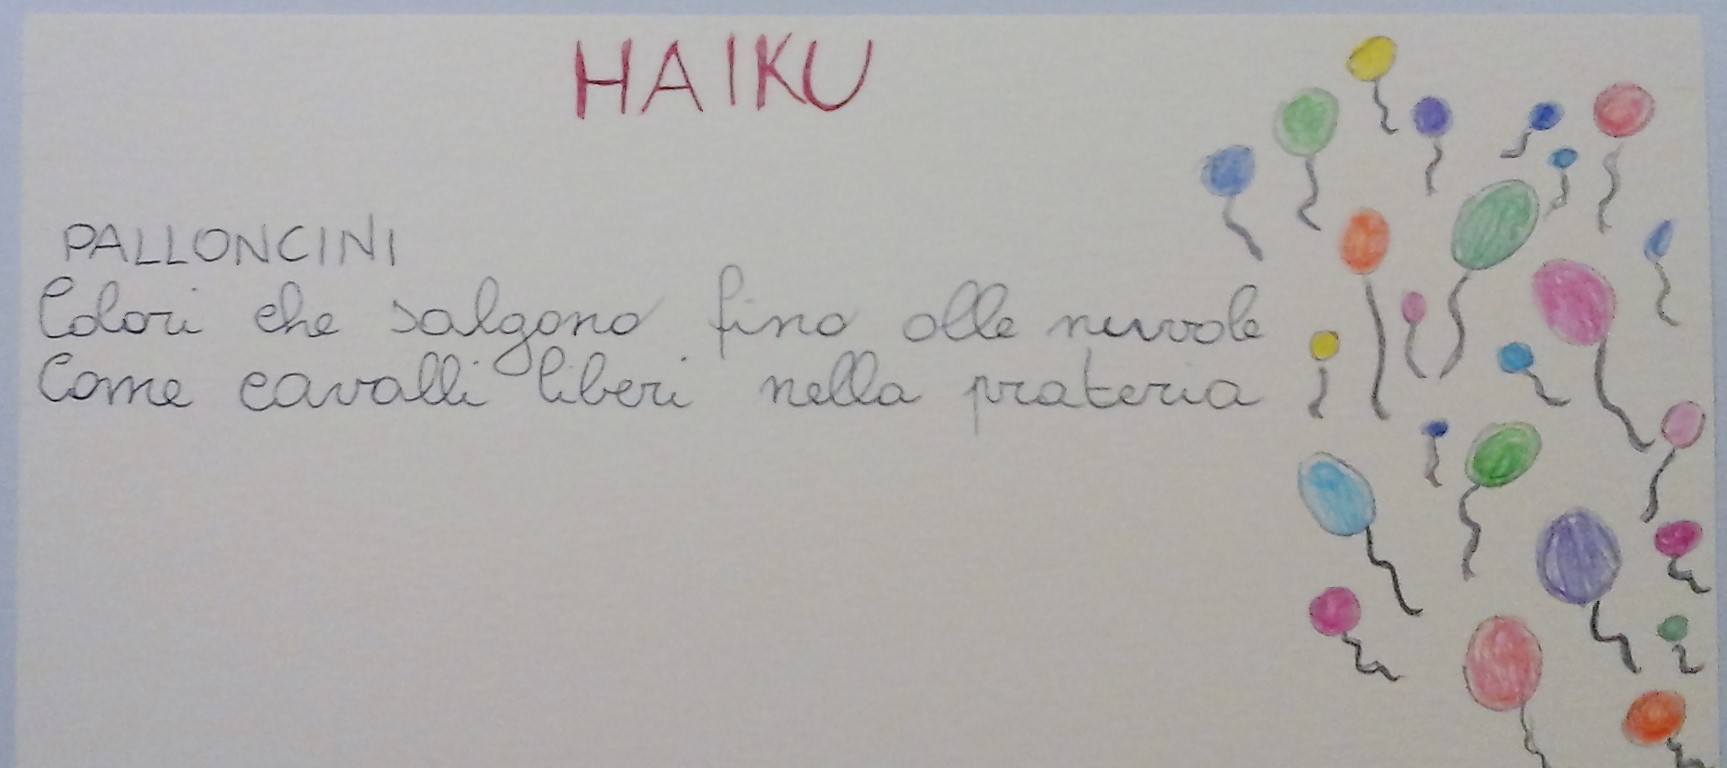 HAIKU
PALLONCINI
Colori che salgono fino alle nuvole
Come cavalli liberi nella prateria